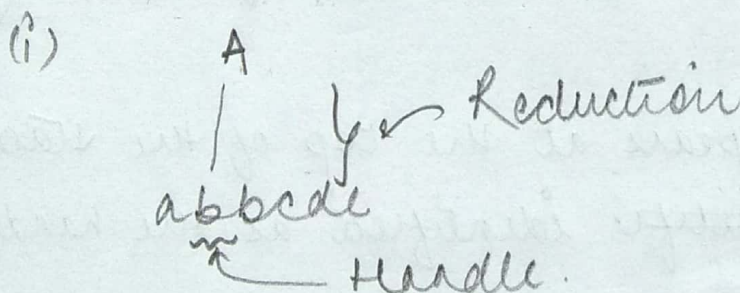 (i)
A
Reduction
abbcde
Handle.